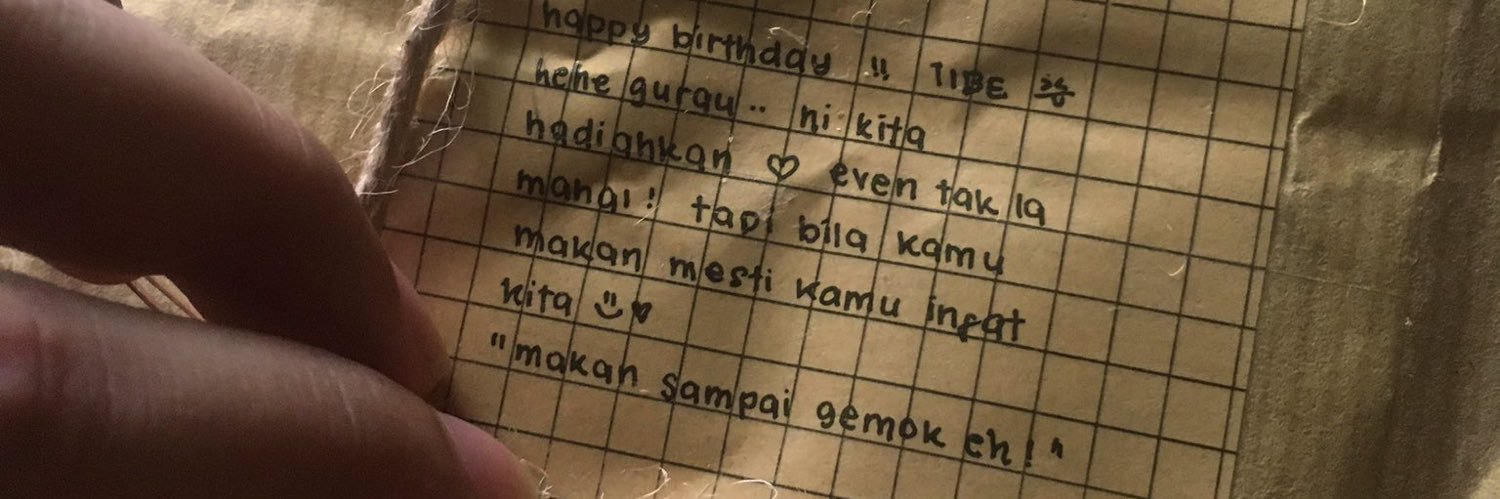 happy birthday !! TIBE
hehe gurau.. ni kita
hadiahkan ♡ even tak la
mahal! tapi bila kamu
makan mesti kamu ingat
kita ♥
"makan sampai gemok eh!"